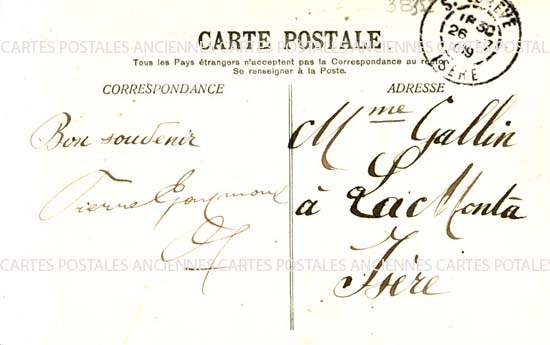 CARTE POSTALE.
Tous les Pays étrangers n'acceptent pas la Correspondance au recto
Se renseigner à la Poste.
CORRESPONDANCE
ADRESSE
Bon souvenir
Pierre Gaymoud
Mme Gallin
à La Monta
Isère
3852
26
09
ISÈRE
CARTES POSTALES ANCIENNES CARTES POSTALES ANCIENNES CARTES POSTALES ANCIENNES
CARTES POSTALES ANCIENNES CARTES POSTALES ANCIENNES CARTES POTALES ANCIENNES